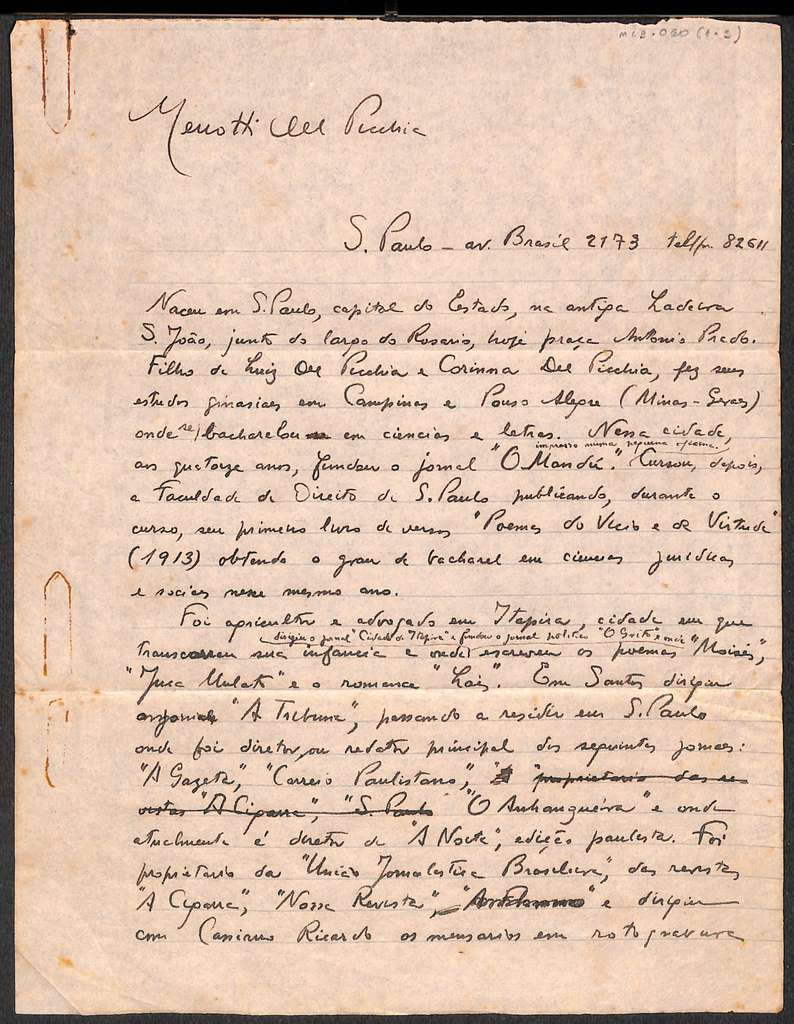 MLB.080 (1.3)
Menotti Del Picchia
S. Paulo - av. Brasil 2173 telfn. 82611
Naceu em S. Paulo, capital do Estado, na antiga Ladeira
S. João, junto do largo do Rosario, hoje praça Antonio Prado.
Filho de Luiz Del Picchia e Corinna Del Picchia, fez seus
estudos ginasiaes em Campinas e Pouso Alegre (Minas-Geraes)
onde se bacharelou em ciencias e letras. Nessa cidade,
impresso numa pequena
aos quatorze anos, fundou o jornal "O Mandú". Cursou, depois,
a Faculdade de Direito de S. Paulo publicando, durante o
curso, seu primeiro livro de versos "Poemas do Vicio e da Virtude"
(1913) obtendo o grau de bacharel em ciencias juridicas
e sociaes nesse mesmo ano.
Foi agricultor e advogado em Itapira, cidade em que
dirigiu o jornal "Cidade de Itapira" e fundou o jornal politico "O Grito"
transcorreu sua infancia e onde escreveu os poemas "Moisés",
"Juca Mulato" e o romance "Lais". Em Santos dirigiu
"A Tribuna", passando a residir em S. Paulo
onde foi diretor, ou redator principal dos seguintes jornaes:
"A Gazeta", "Correio Paulistano", "proprietario das re
vistas "A Cigarra", "S. Paulo" "O Anhanguéra" e onde
atualmente é diretor de "A Noite", edição paulista. Foi
proprietario da "União Jornalistica Brasileira", das revistas
"A Cigarra", "Nossa Revista", e dirigiu
com Cassiano Ricardo os mensarios em rotogravura